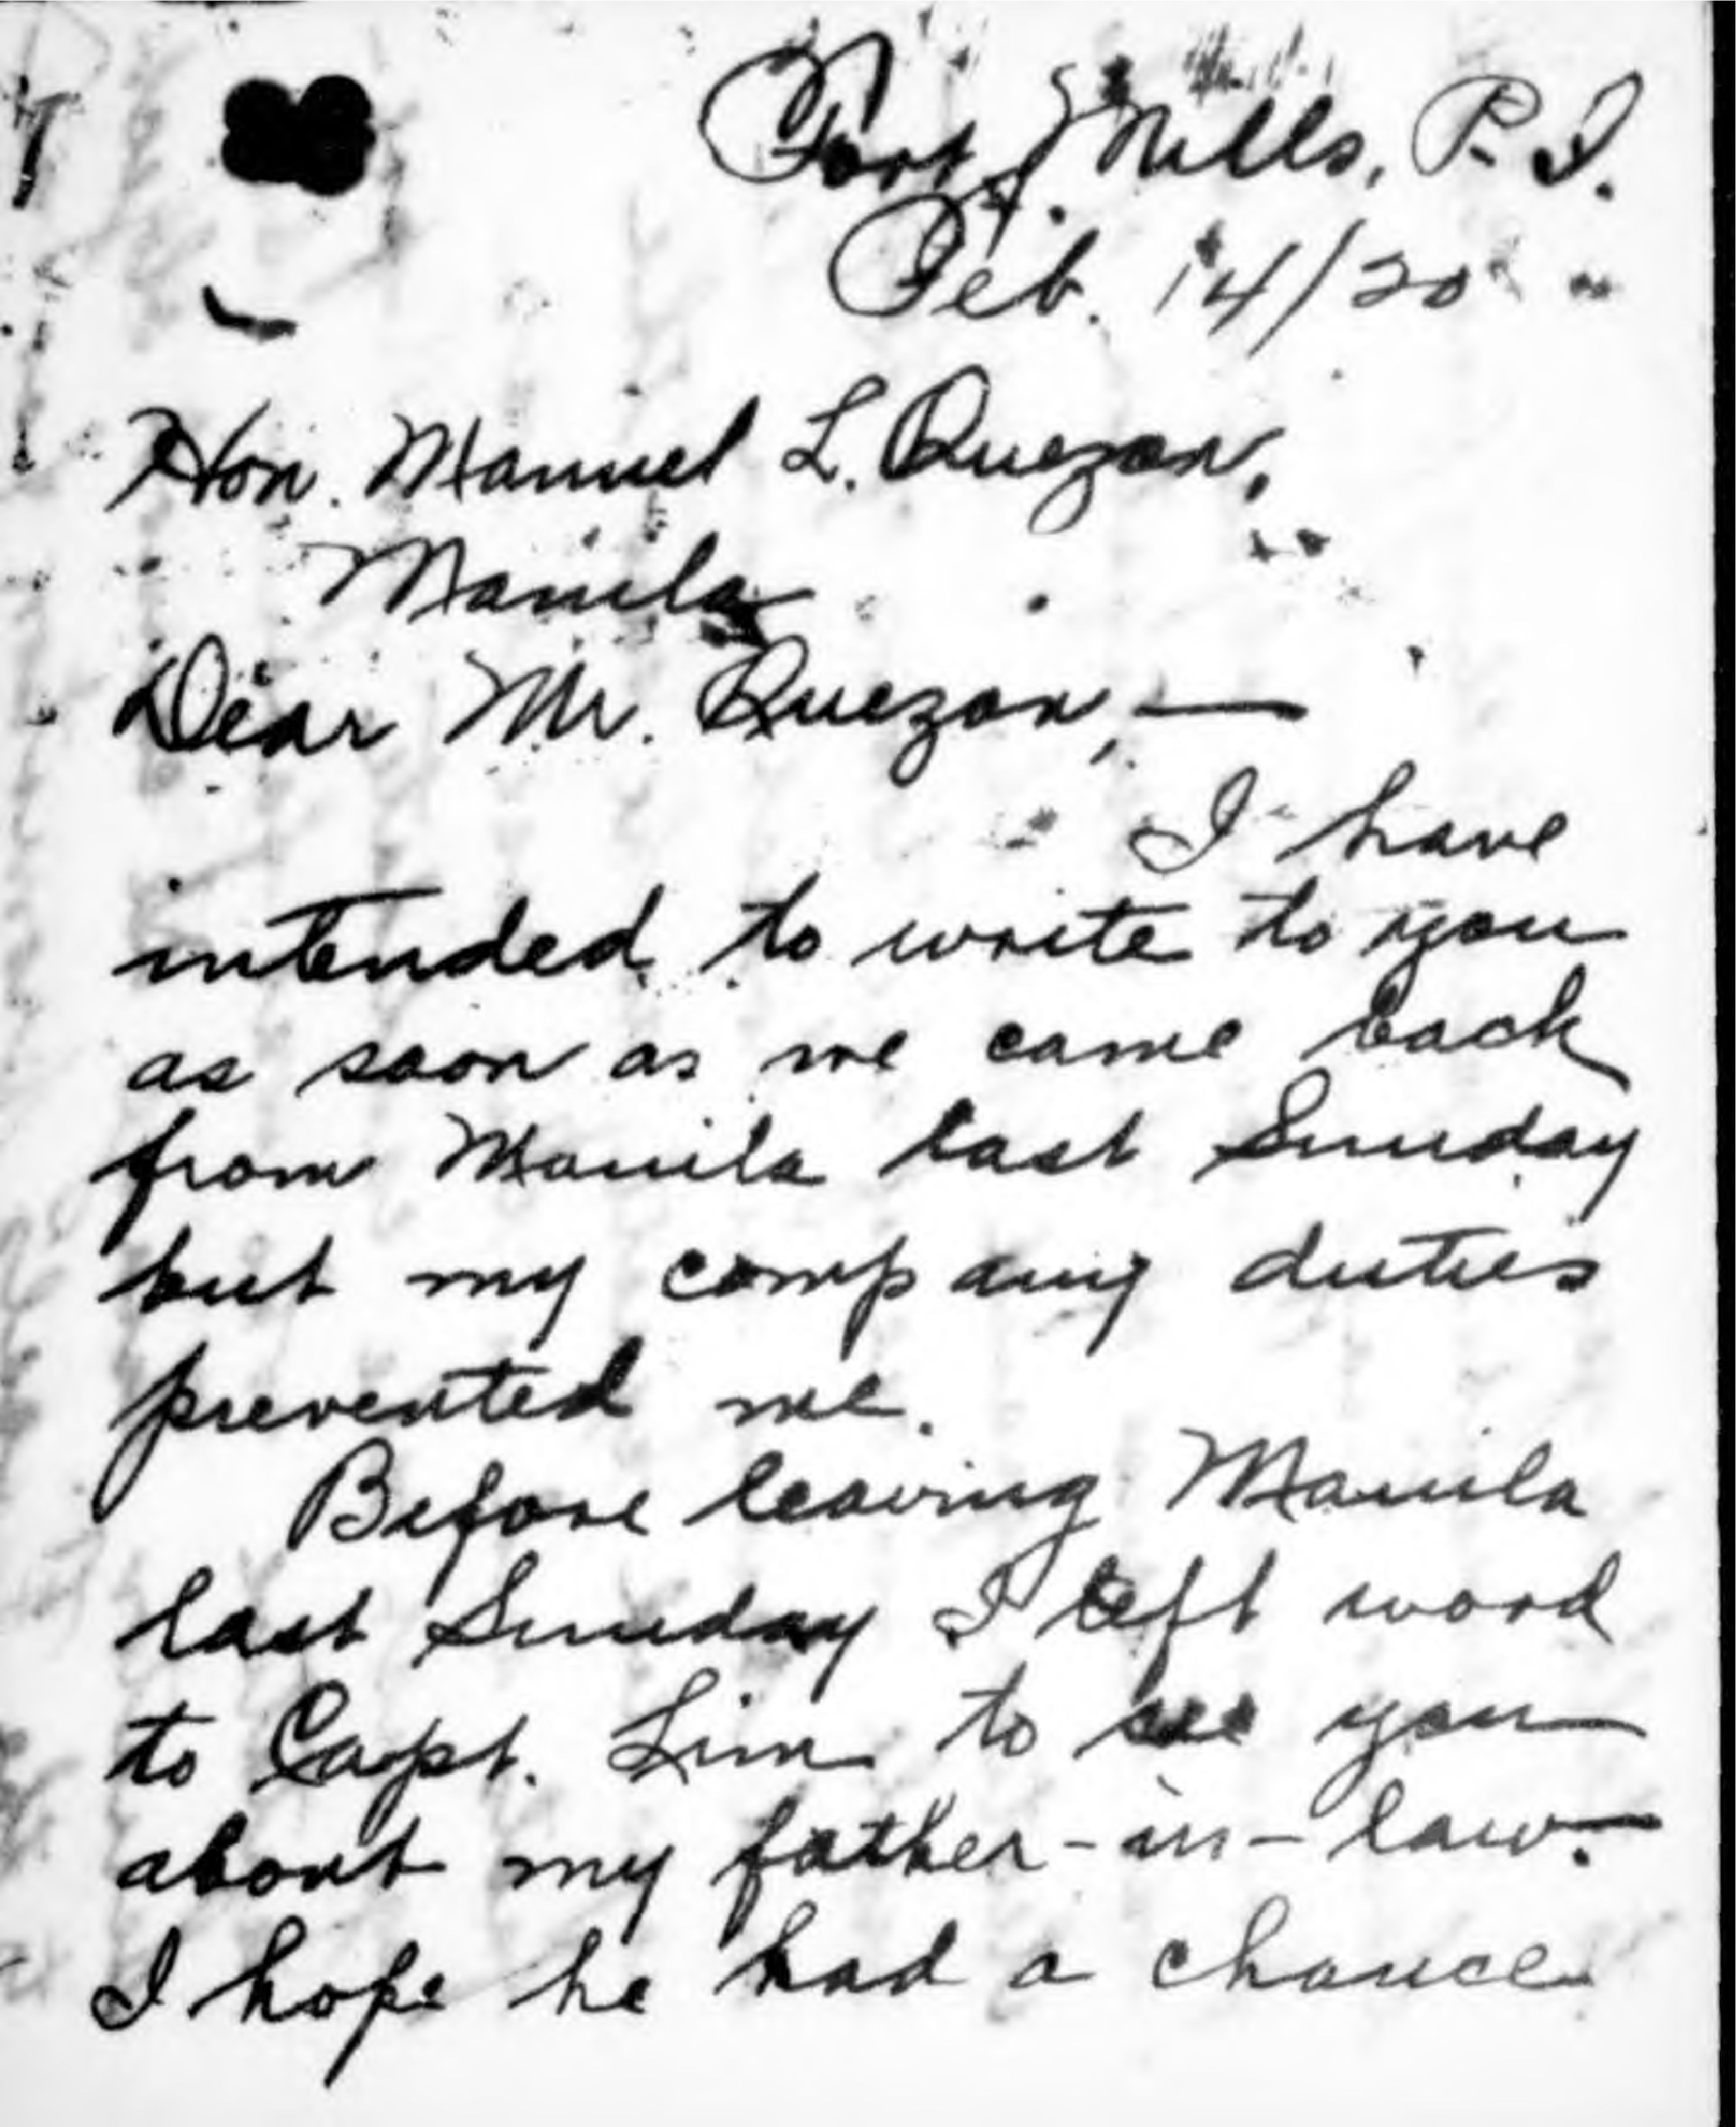 Fort Mills, P. I.
Feb. 14/20
Hon. Manuel L. Quezon,
Manila
Dear Mr. Quezon, —
I have
intended to write to you
as soon as we came back
from Manila last Sunday
but my company duties
prevented me.
Before leaving Manila
last Sunday I left word
to Capt. Lim to see you
about my father-in-law.
I hope he had a chance